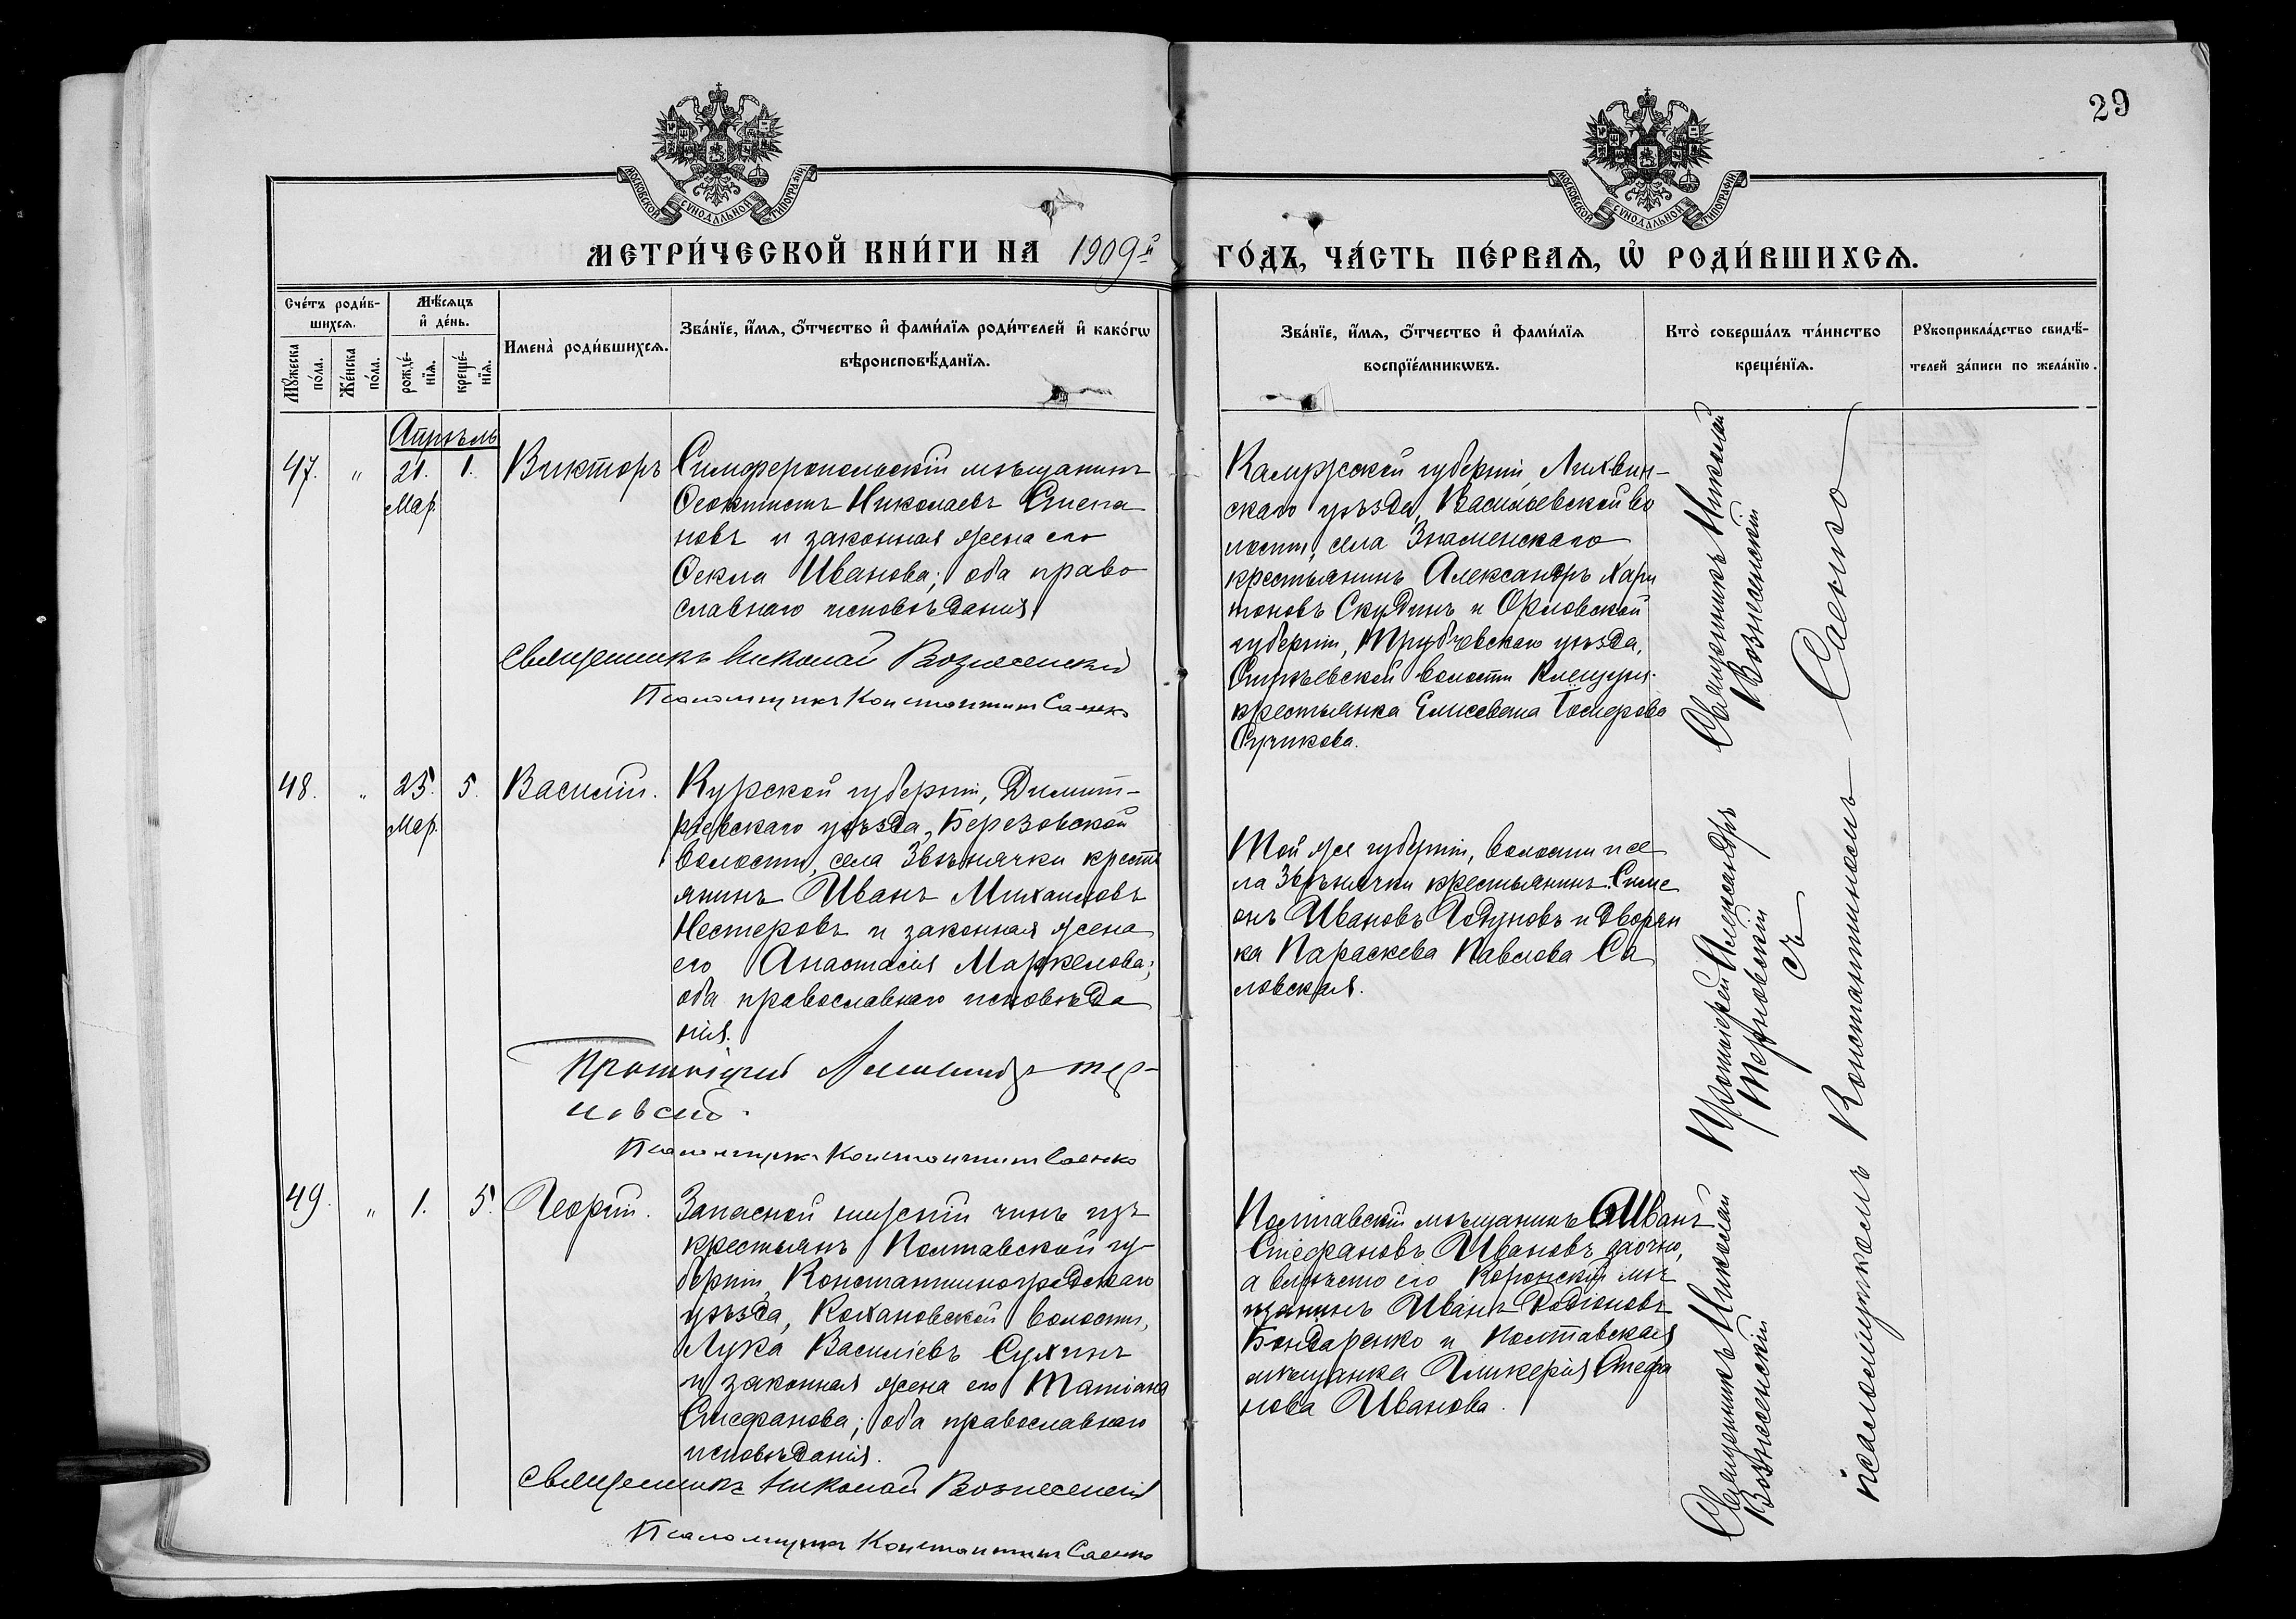 29
МОСКОВСКОЙ СѴНОДАЛЬНОЙ ТИПОГРАФІИ
МОСКОВСКОЙ СѴНОДАЛЬНОЙ ТИПОГРАФІИ
МЕТРИ́ЧЕСКОЙ КНИ́ГИ НА 1909й ГО́ДЪ, ЧА́СТЬ ПЕ́РВАѦ, Ѡ҆ РОДИ́ВШИХСѦ.
Сче́тъ роди́в-
шихсѧ.
Мꙋ́жеска
по́ла.
Же́нска
по́ла.
Мѣ́сѧцъ
и҆ де́нь.
рожде́-
нїѧ.
креще́-
нїѧ.
Имена̀ роди́вшихсѧ.
Зва́нїе, и҆́мѧ, ѻ҆́тчество и҆ фами́лїѧ роди́телей и҆ како́гѡ
вѣроисповѣ́данїѧ.
Зва́нїе, и҆́мѧ, ѻ҆́тчество и҆ фами́лїѧ
воспрїе́мникѡвъ.
Кто̀ соверша́лъ та́инство
креще́нїѧ.
Рꙋкоприкла́дство свидѣ́-
телей за́писи по жела́нїю.
Апрѣль
47. " 21. 1. Викторъ
Мар.
Симферопольскій мѣщанинъ
Ѳеоктистъ Николаевъ Степа
новъ и законная жена его
Ѳекла Иванова; оба право
славнаго исповѣданія
Священникъ Николай Вознесенскій
Псаломщикъ Константинъ Саенко
Калужской губерніи, Лихвин-
скаго уѣзда, Васильевской во
лости, села Знаменскаго
крестьянинъ Александръ Хари
тоновъ Скудинъ и Орловской
губерніи, Трубчевскаго уѣзда,
волости
крестьянка Елисавета
Сучкова.
Священникъ Николай
Вознесенскій
48. " 25. 5. Василій.
Мар.
Курской губерніи, Димит-
ріевскаго уѣзда, Березовской
волости, села Звѣнячки кресть
янинъ Иванъ Михаиловъ
Нестеровъ и законная жена
его Анастасія Маркелова;
оба православнаго исповѣда
нія.
Протоіерей Александръ Тер-
новскій.
Псаломщикъ Константинъ Саенко
Той же губерніи, волости и се
ла Звѣнячки крестьянинъ Симе
онъ Ивановъ Годуновъ и дворян
ка Параскева Павлова Са
ловская.
Протоіерей Александръ
Терновскій
съ
псаломщикомъ Константиномъ Саенко
49. " 1. 5. Георгій.
Запасной нижній чинъ изъ
крестьянъ Полтавской гу-
берніи, Константиноградскаго
уѣзда, Кохановской волости,
Лука Василіевъ Сухинъ
и законная жена его Татіана
Стефанова; оба православнаго
исповѣданія.
Священникъ Николай Вознесенскій
Псаломщикъ Константинъ Саенко
Полтавскій мѣщанинъ Иванъ
Стефановъ Ивановъ заочно,
а вмѣсто его мѣ
щанинъ Иванъ Родіоновъ
Бондаренко и Полтавская
мѣщанка Гликерія Стефа
нова Иванова.
Священникъ Николай
Вознесенскій